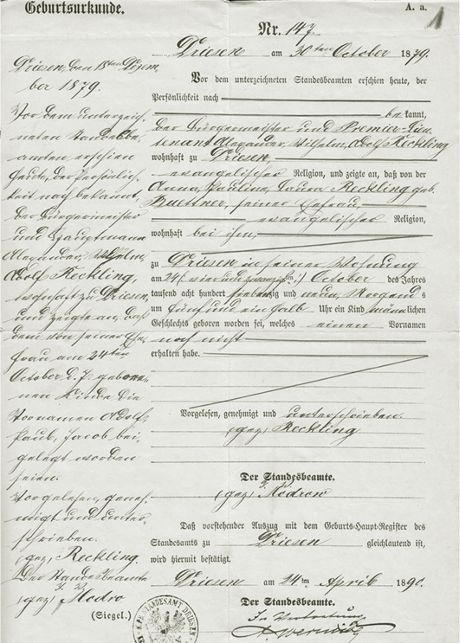 Geburtsurkunde.
A. a.
1
Nr. 147.
Driesen am 30ten October 1879.
Vor dem unterzeichneten Standesbeamten erschien heute, der
Persönlichkeit nach
bekannt,
der Bürgermeister und Premier-Lieu-
tenant Alexander, Wilhelm, Adolf Reckling
wohnhaft zu Driesen,
evangelischer Religion, und zeigte an, daß von der
Anna, Paulina, Reckling geb.
Buttner, seiner Ehefrau
evangelischer Religion,
wohnhaft bei ihm,
zu Driesen in seiner Wohnung
am 24 (vier und zwanzig) October des Jahres
tausend acht hundert siebenzig und neun, Morgens
um fünf und ein halb Uhr ein Kind männlichen
Geschlechts geboren worden sei, welches einen Vornamen
noch nicht
erhalten habe.
Vorgelesen, genehmigt und unterschrieben.
(gez) Reckling
Der Standesbeamte.
(gez) Modrow
Daß vorstehender Auszug mit dem Geburts-Haupt-Register des
Standesamts zu Driesen gleichlautend ist,
wird hiermit bestätigt.
Driesen am 24ten April 1890.
Der Standesbeamte.
In Vertretung
Driesen, den 18ten Dezem-
ber 1879.
Vor dem unterzeich-
neten Standesbe-
amten erschien
heute, der Persönlich-
keit nach bekannt,
der Bürgermeister
und Hauptmann
Alexander, Wilhelm,
Adolf Reckling,
wohnhaft zu Driesen,
und zeigte an, daß
dem von seiner Ehe-
frau am 24ten
October d. J. gebore-
nen Kinde die
Vornamen Adolf,
Paul, Jacob bei-
gelegt worden
seien.
Vorgelesen, geneh-
migt und unter-
schrieben.
(gez) Reckling.
Der Standesbeamte
(gez) Modro
(Siegel.)